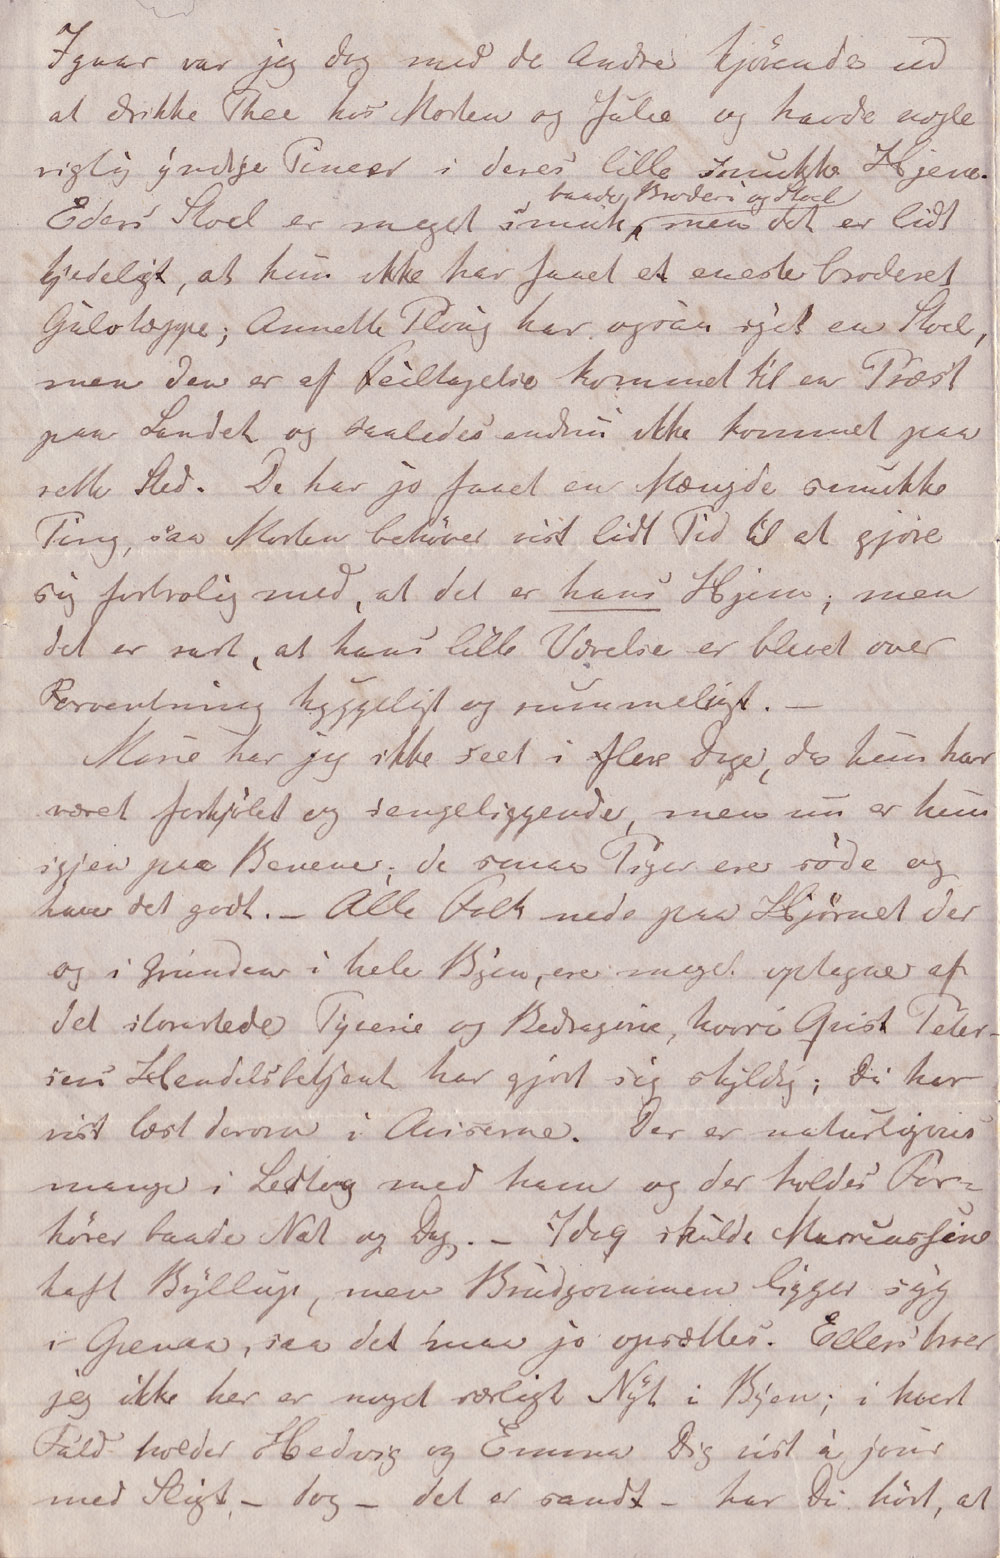 Igaar var jeg dog med de Andre kjørende ud
at drikke Thee hos Morten og Julie og havde nogle
rigtig yndige Timer i deres lille smukke Hjem.
baade Broderi og Stoel
Eders Stoel er meget smuk, men det er lidt
kjedeligt, at hun ikke har faaet et eneste broderet
Gulvtæppe; Annette Ploug har ogsaa syet en Stoel,
men den er af Feiltagelse kommet til en Præst
paa Landet og saaledes endnu ikke kommet paa
rette Sted. De har jo faaet en Mængde smukke
Ting, saa Morten behøver vist lidt Tid til at gjøre
sig fortrolig med, at det er hans Hjem; men
det er sart, at hans lille Værelse er blevet over
Forventning hyggeligt og rummeligt. —
Marie har jeg ikke seet i flere Dage, da hun har
været forkjølet og sengeliggende, men nu er hun
igjen paa Benene; de smaa Piger ere søde og
have det godt. — Alle Folk nede paa Hjørnet der
og i Grunden i hele Byen, ere meget optagne af
det storartede Tyverie og Bedragerie, hvori Qvist Peter-
sens Handelsbetjent har gjort sig skyldig; Du har
vist læst derom i Aviserne. Der er naturligviis
mange i Ledtog med ham og der holdes For-
hører baade Nat og Dag. — Idag skulde
haft Bryllup, men Brudgommen ligger syg
i Grenaa, saa det maa jo opsættes. Ellers troer
jeg ikke her er noget særligt Nyt i Byen; i hvert
Fald holder Hedvig og Emma Dig vist à jour
med Sligt — dog — det er sandt — har Du hört, at